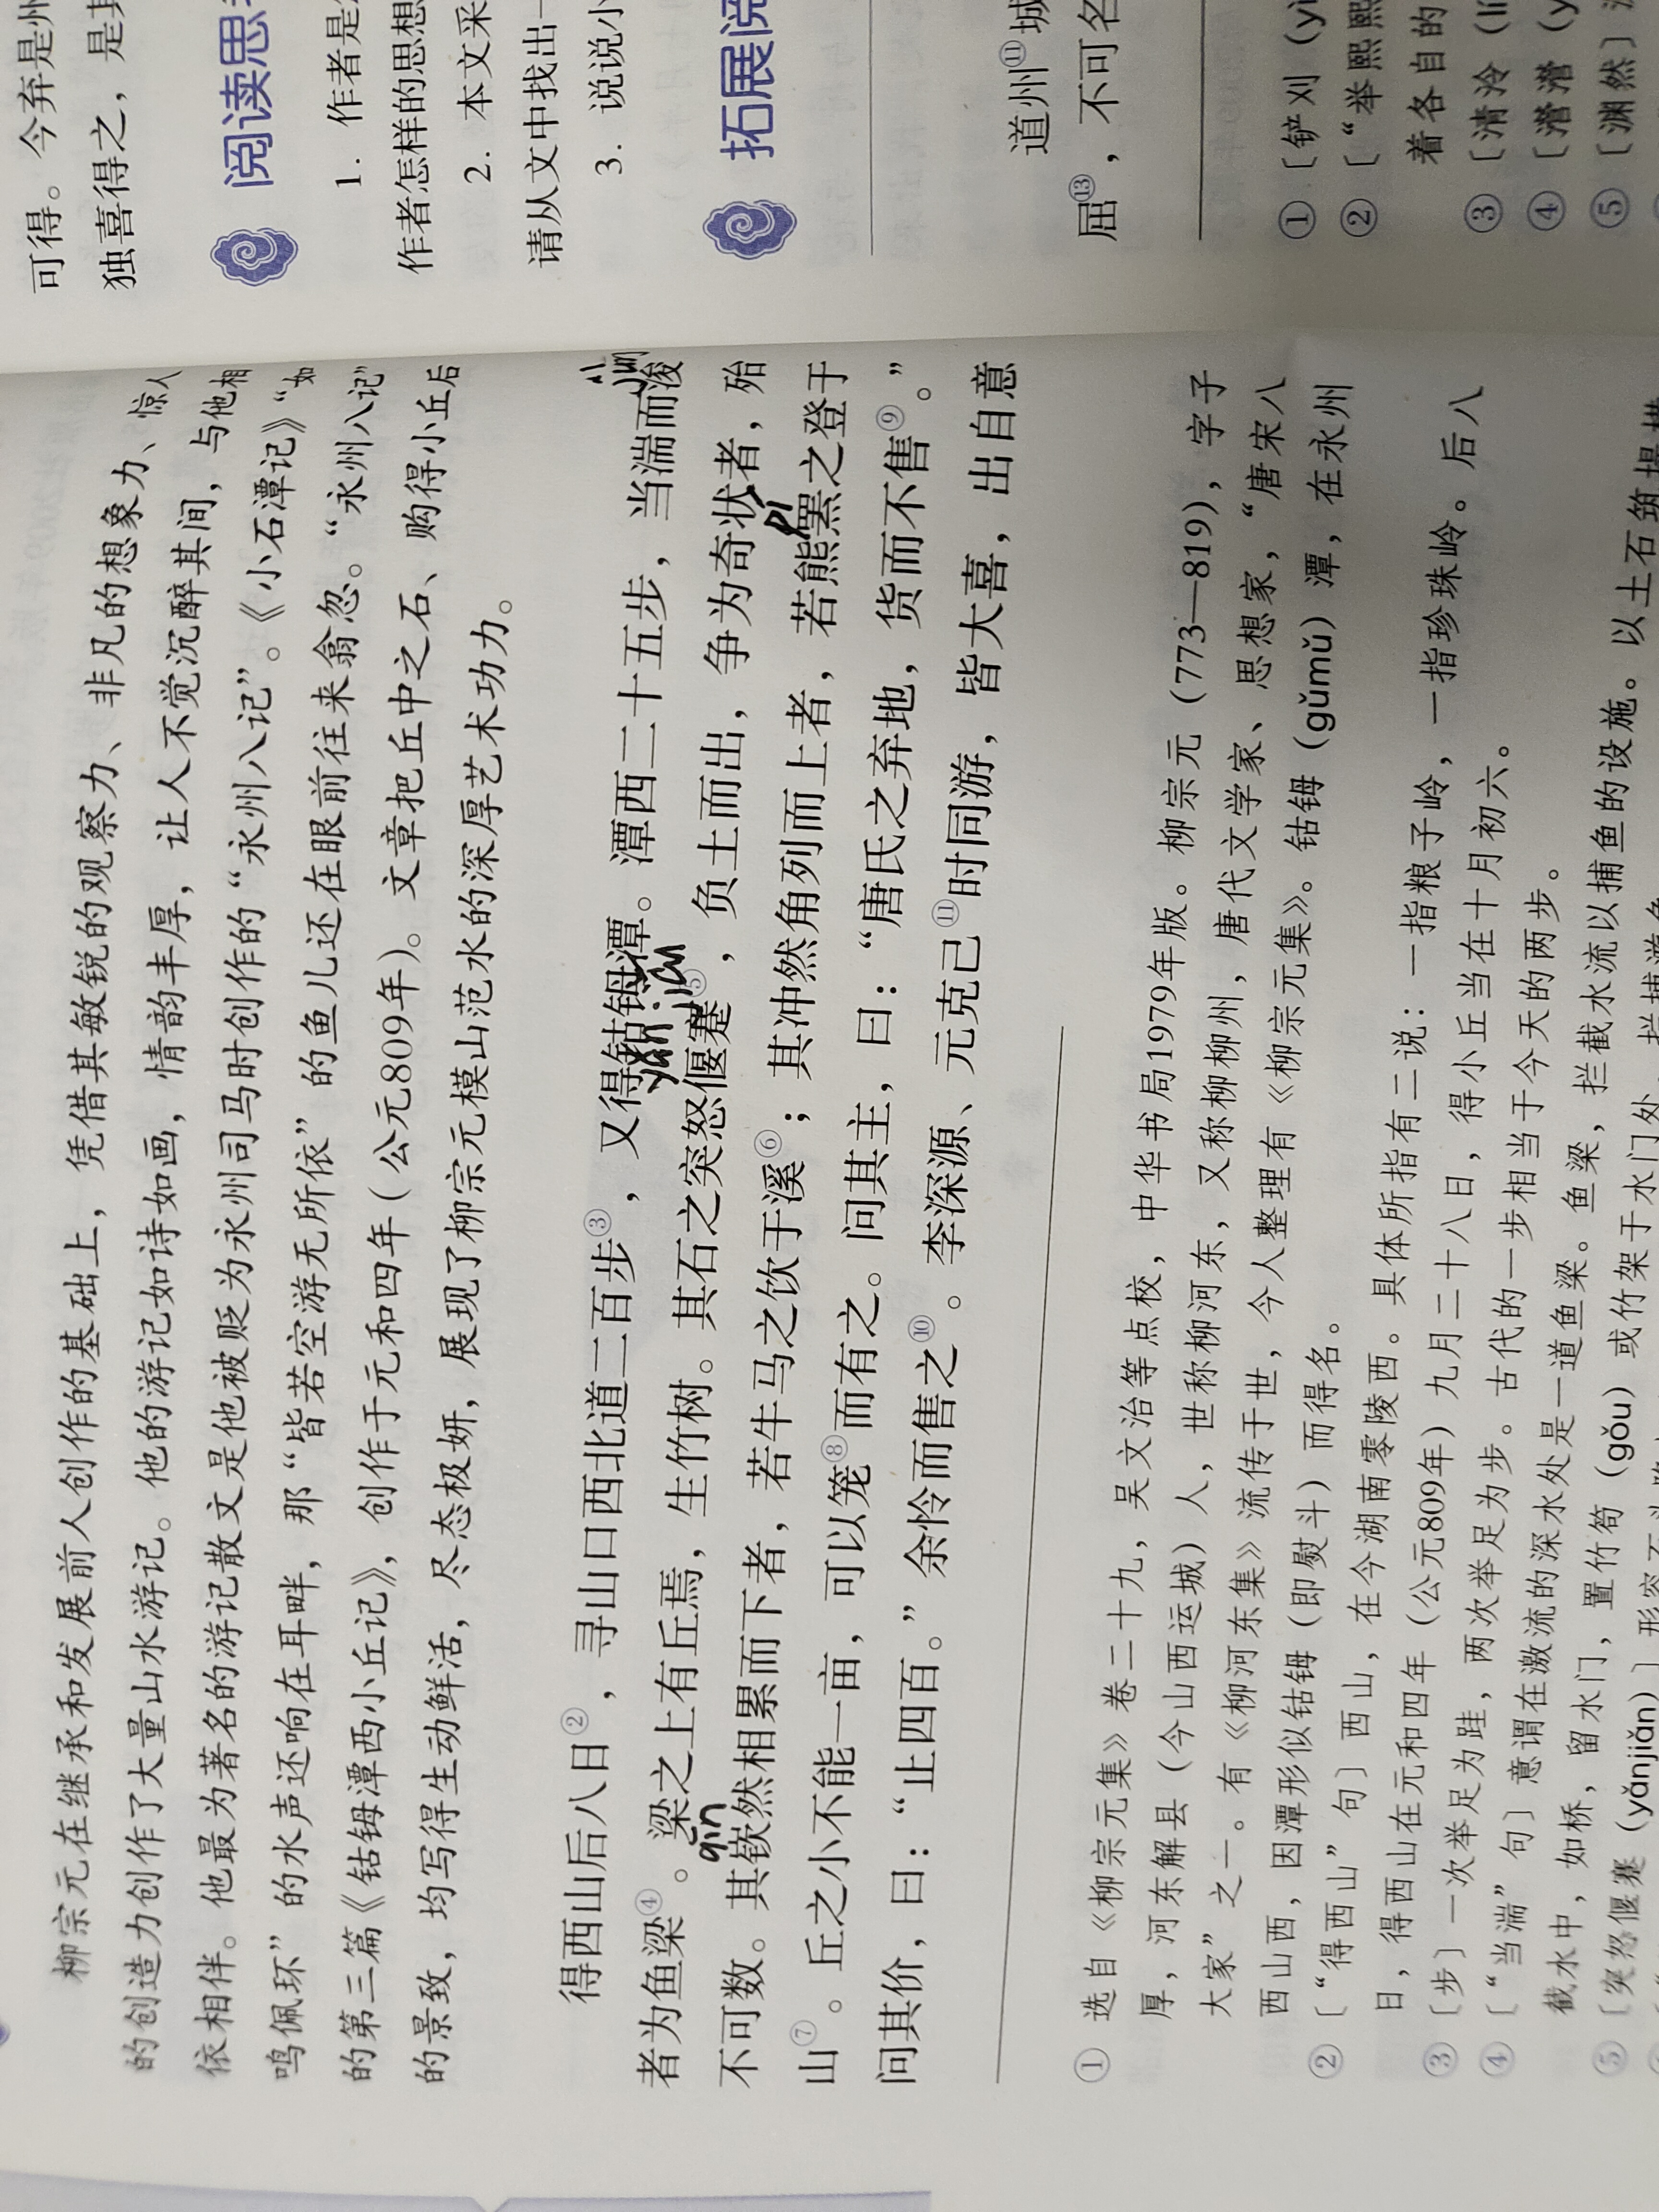 柳宗元在继承和发展前人创作的基础上，凭借其敏锐的观察力、非凡的想象力、惊人
的创造力创作了大量山水游记。他的游记如诗如画，情韵丰厚，让人不觉沉醉其间，与他相
依相伴。他最为著名的游记散文是他被贬为永州司马时创作的“永州八记”。《小石潭记》“如
鸣佩环”的水声还响在耳畔，那“皆若空游无所依”的鱼儿还在眼前往来翕忽。“永州八记”
的第三篇《钴𬭁潭西小丘记》，创作于元和四年（公元809年）。文章把丘中之石、购得小丘后
的景致，均写得生动鲜活，尽态极妍，展现了柳宗元模山范水的深厚艺术功力。
得西山后八日②，寻山口西北道二百步③，又得钴𬭁潭。潭西二十五步，当湍而浚
yǎn jiǎn
者为鱼梁④。梁之上有丘焉，生竹树。其石之突怒偃蹇⑤，负土而出，争为奇状者，殆
qīn
不可数。其嵚然相累而下者，若牛马之饮于溪⑥；其冲然角列而上者，若熊罴之登于
pí
山⑦。丘之小不能一亩，可以笼⑧而有之。问其主，曰：“唐氏之弃地，货而不售⑨。”
问其价，曰：“止四百。”余怜而售之⑩。李深源、元克己⑪时同游，皆大喜，出自意
① 选自《柳宗元集》卷二十九，吴文治等点校，中华书局1979年版。柳宗元（773—819），字子
厚，河东解县（今山西运城）人，世称柳河东，又称柳柳州，唐代文学家、思想家，“唐宋八
大家”之一。有《柳河东集》流传于世，今人整理有《柳宗元集》。钴𬭁（gǔmǔ）潭，在永州
西山西，因潭形似钴𬭁（即熨斗）而得名。
② 〔“得西山”句〕西山，在今湖南零陵西。具体所指有二说：一指粮子岭，一指珍珠岭。后八
日，得西山在元和四年（公元809年）九月二十八日，得小丘当在十月初六。
③ 〔步〕一次举足为跬，两次举足为步。古代的一步相当于今天的两步。
④ 〔“当湍”句〕意谓在激流的深水处是一道鱼梁。鱼梁，拦截水流以捕鱼的设施。以土石筑堤横
截水中，如桥，留水门，置竹笱（gǒu）或竹架于水门处，拦捕游鱼。
⑤ 〔突怒偃蹇（yǎnjiǎn）〕形容石头
可得。今弃是州
独喜得之，是其
阅读思
1. 作者是
作者怎样的思想
2. 本文采
请从文中找出一
3. 说说小
拓展阅
道州⑪城
屈⑬，不可名
① 〔铲刈（yì
② 〔“举熙熙
着各自的
③ 〔清泠（lí
④ 〔瀯瀯（y
⑤ 〔渊然〕